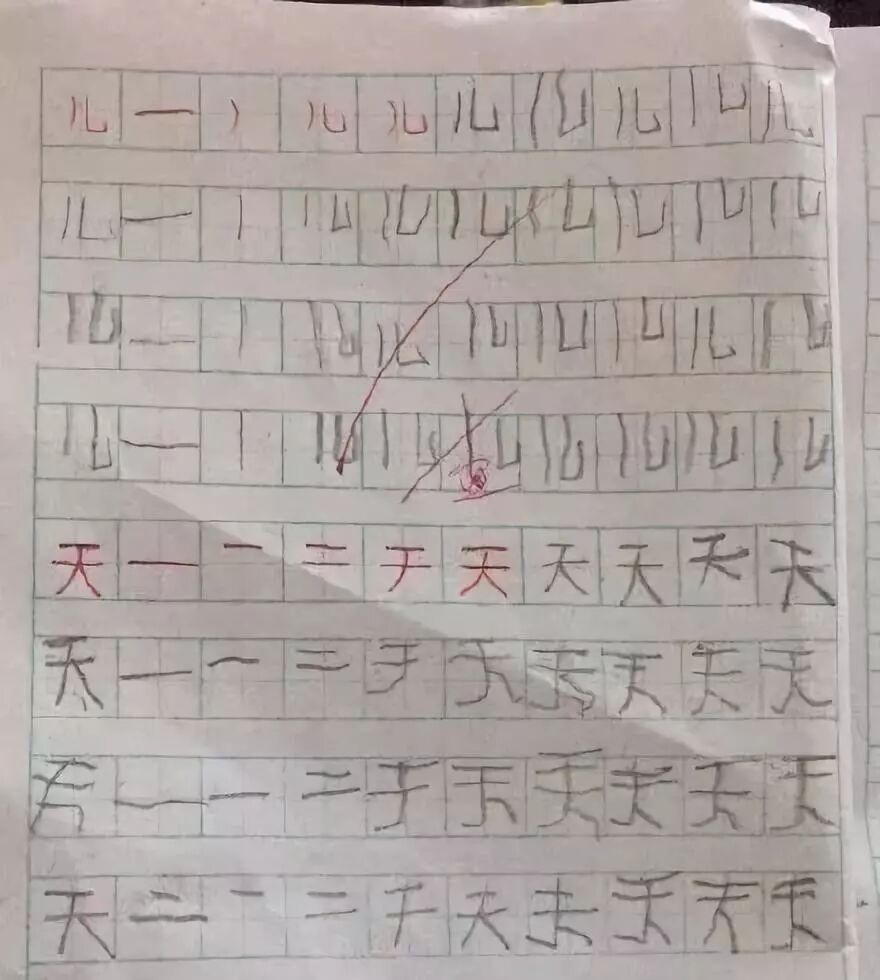 儿 一 丿 儿 儿 儿 儿 儿 儿 儿
儿 一 丨 儿 儿 儿 儿 儿 儿 儿
儿 一 丨 儿 儿 儿 儿 儿 儿 儿
儿 一 丨 儿 儿 儿 儿 儿 儿
天 一 一 二 于 天 天 天 天 天
天 一 一 二 于 天 天 天 天 天
天 一 一 二 于 天 天 天 天 天
天 二 一 二 于 天 天 天 天 天